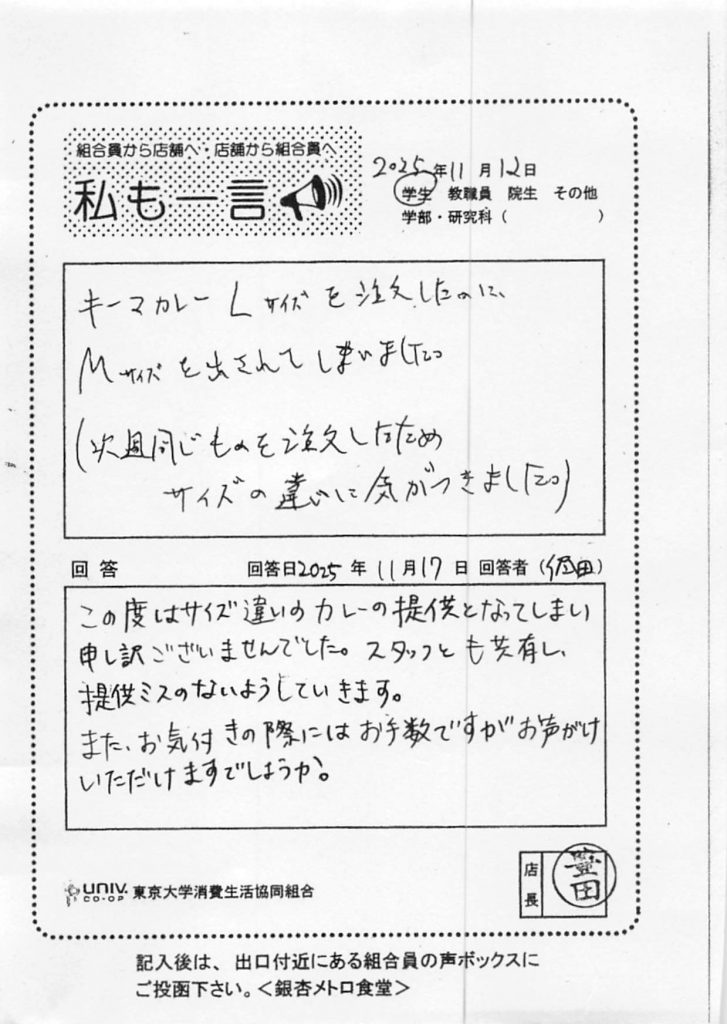 組合員から店舗へ・店舗から組合員へ
私も一言
2025年11月12日
学生 教職員 院生 その他
学部・研究科( )
キーマカレー Lサイズを注文したのに、
Mサイズを出されてしまいました。
(次週同じものを注文したため
サイズの違いに気がつきました。)
回答 回答日2025年11月17日 回答者( 田)
この度はサイズ違いのカレーの提供となってしまい
申し訳ございませんでした。スタッフとも共有し、
提供ミスのないようしていきます。
また、お気付きの際にはお手数ですがお声がけ
いただけますでしょうか。
店長
豊田
UNIV. CO-OP 東京大学消費生活協同組合
記入後は、出口付近にある組合員の声ボックスに
ご投函下さい。<銀杏メトロ食堂>